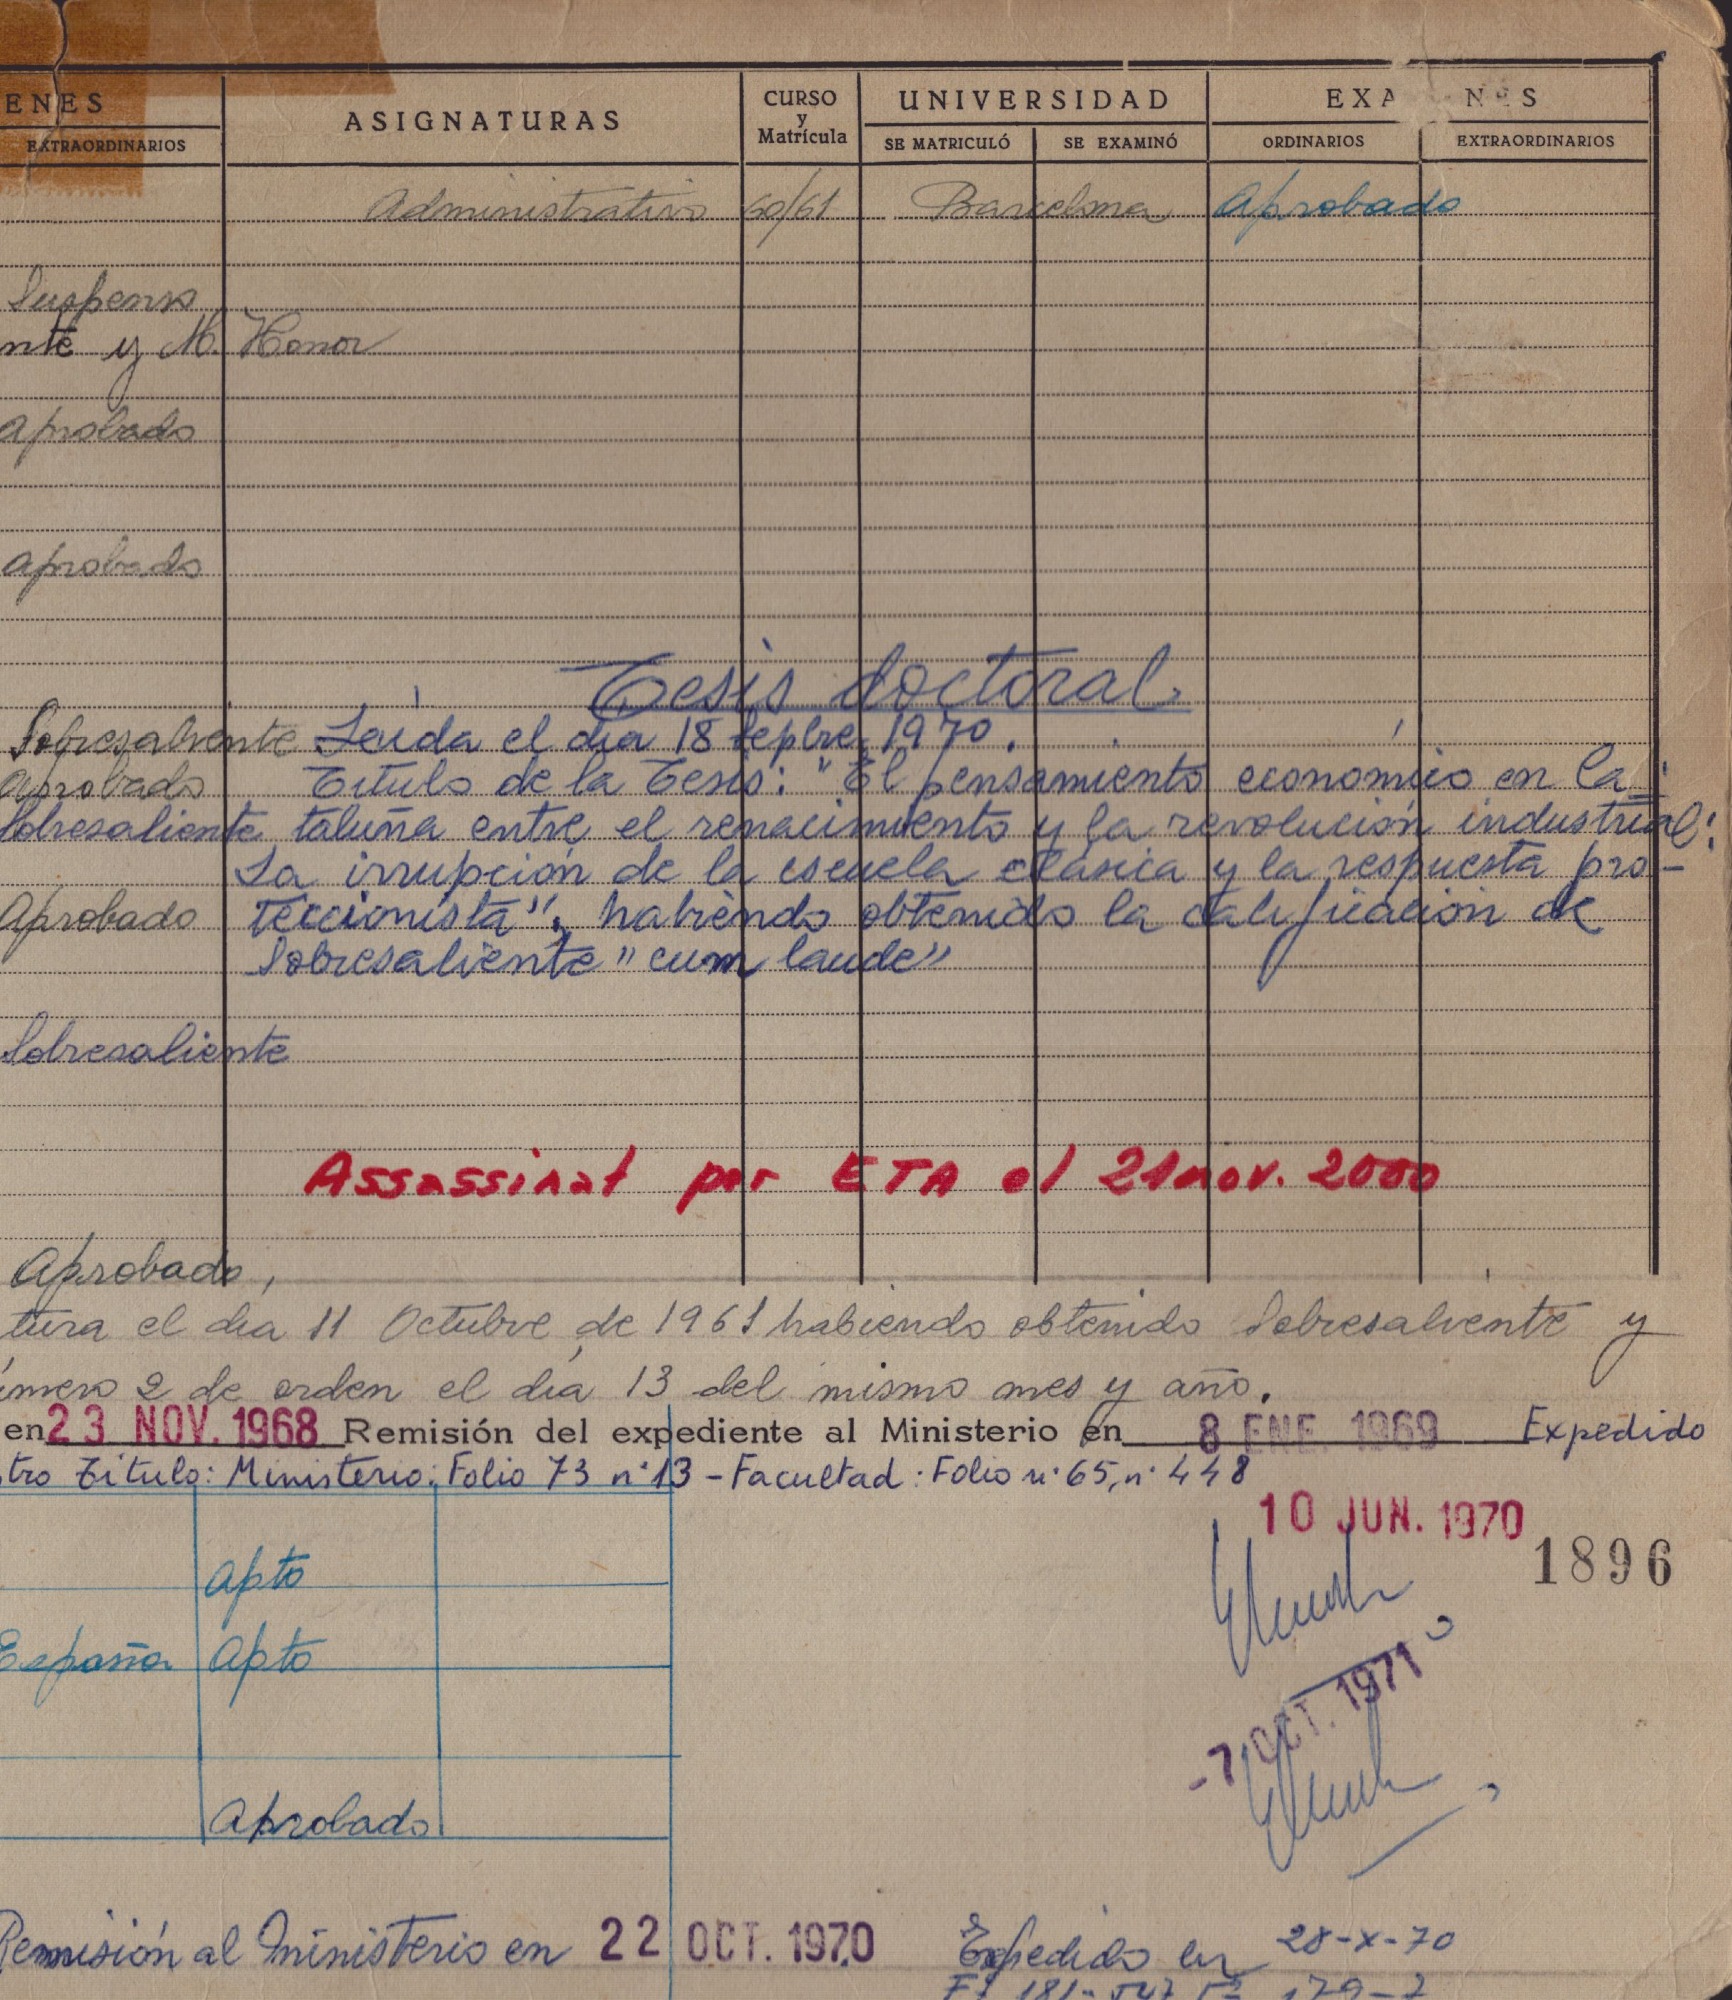 ENES ASIGNATURAS CURSO y Matrícula UNIVERSIDAD EXA NES
EXTRAORDINARIOS SE MATRICULÓ SE EXAMINÓ ORDINARIOS EXTRAORDINARIOS
Administrativo 60/61 Barcelona Aprobado
Suspenso
nte y M. Honor
Aprobado
Aprobado
Tesis doctoral.
Sobresaliente Leída el día 18 Sepbre. 1970.
Aprobado Título de la Tesis: "El pensamiento económico en Ca-
Sobresaliente taluña entre el renacimiento y la revolución industrial:
La irrupción de la escuela clásica y la respuesta pro-
Aprobado teccionista", habiendo obtenido la calificación de
Sobresaliente "cum laude"
Sobresaliente
Assassinat per ETA el 21 nov. 2000
Aprobado,
tura el día 11 Octubre de 1961 habiendo obtenido Sobresaliente y
úmero 2 de orden el día 13 del mismo mes y año.
en 23 NOV. 1968 Remisión del expediente al Ministerio en 8 ENE. 1969 Expedido
tro Título: Ministerio: Folio 73 nº 13 - Facultad: Folio nº 65, nº 448
10 JUN. 1970
1896
Apto
España Apto
-7 OCT. 1971
Aprobado
Remisión al Ministerio en 22 OCT. 1970 Expedido en 28-X-70